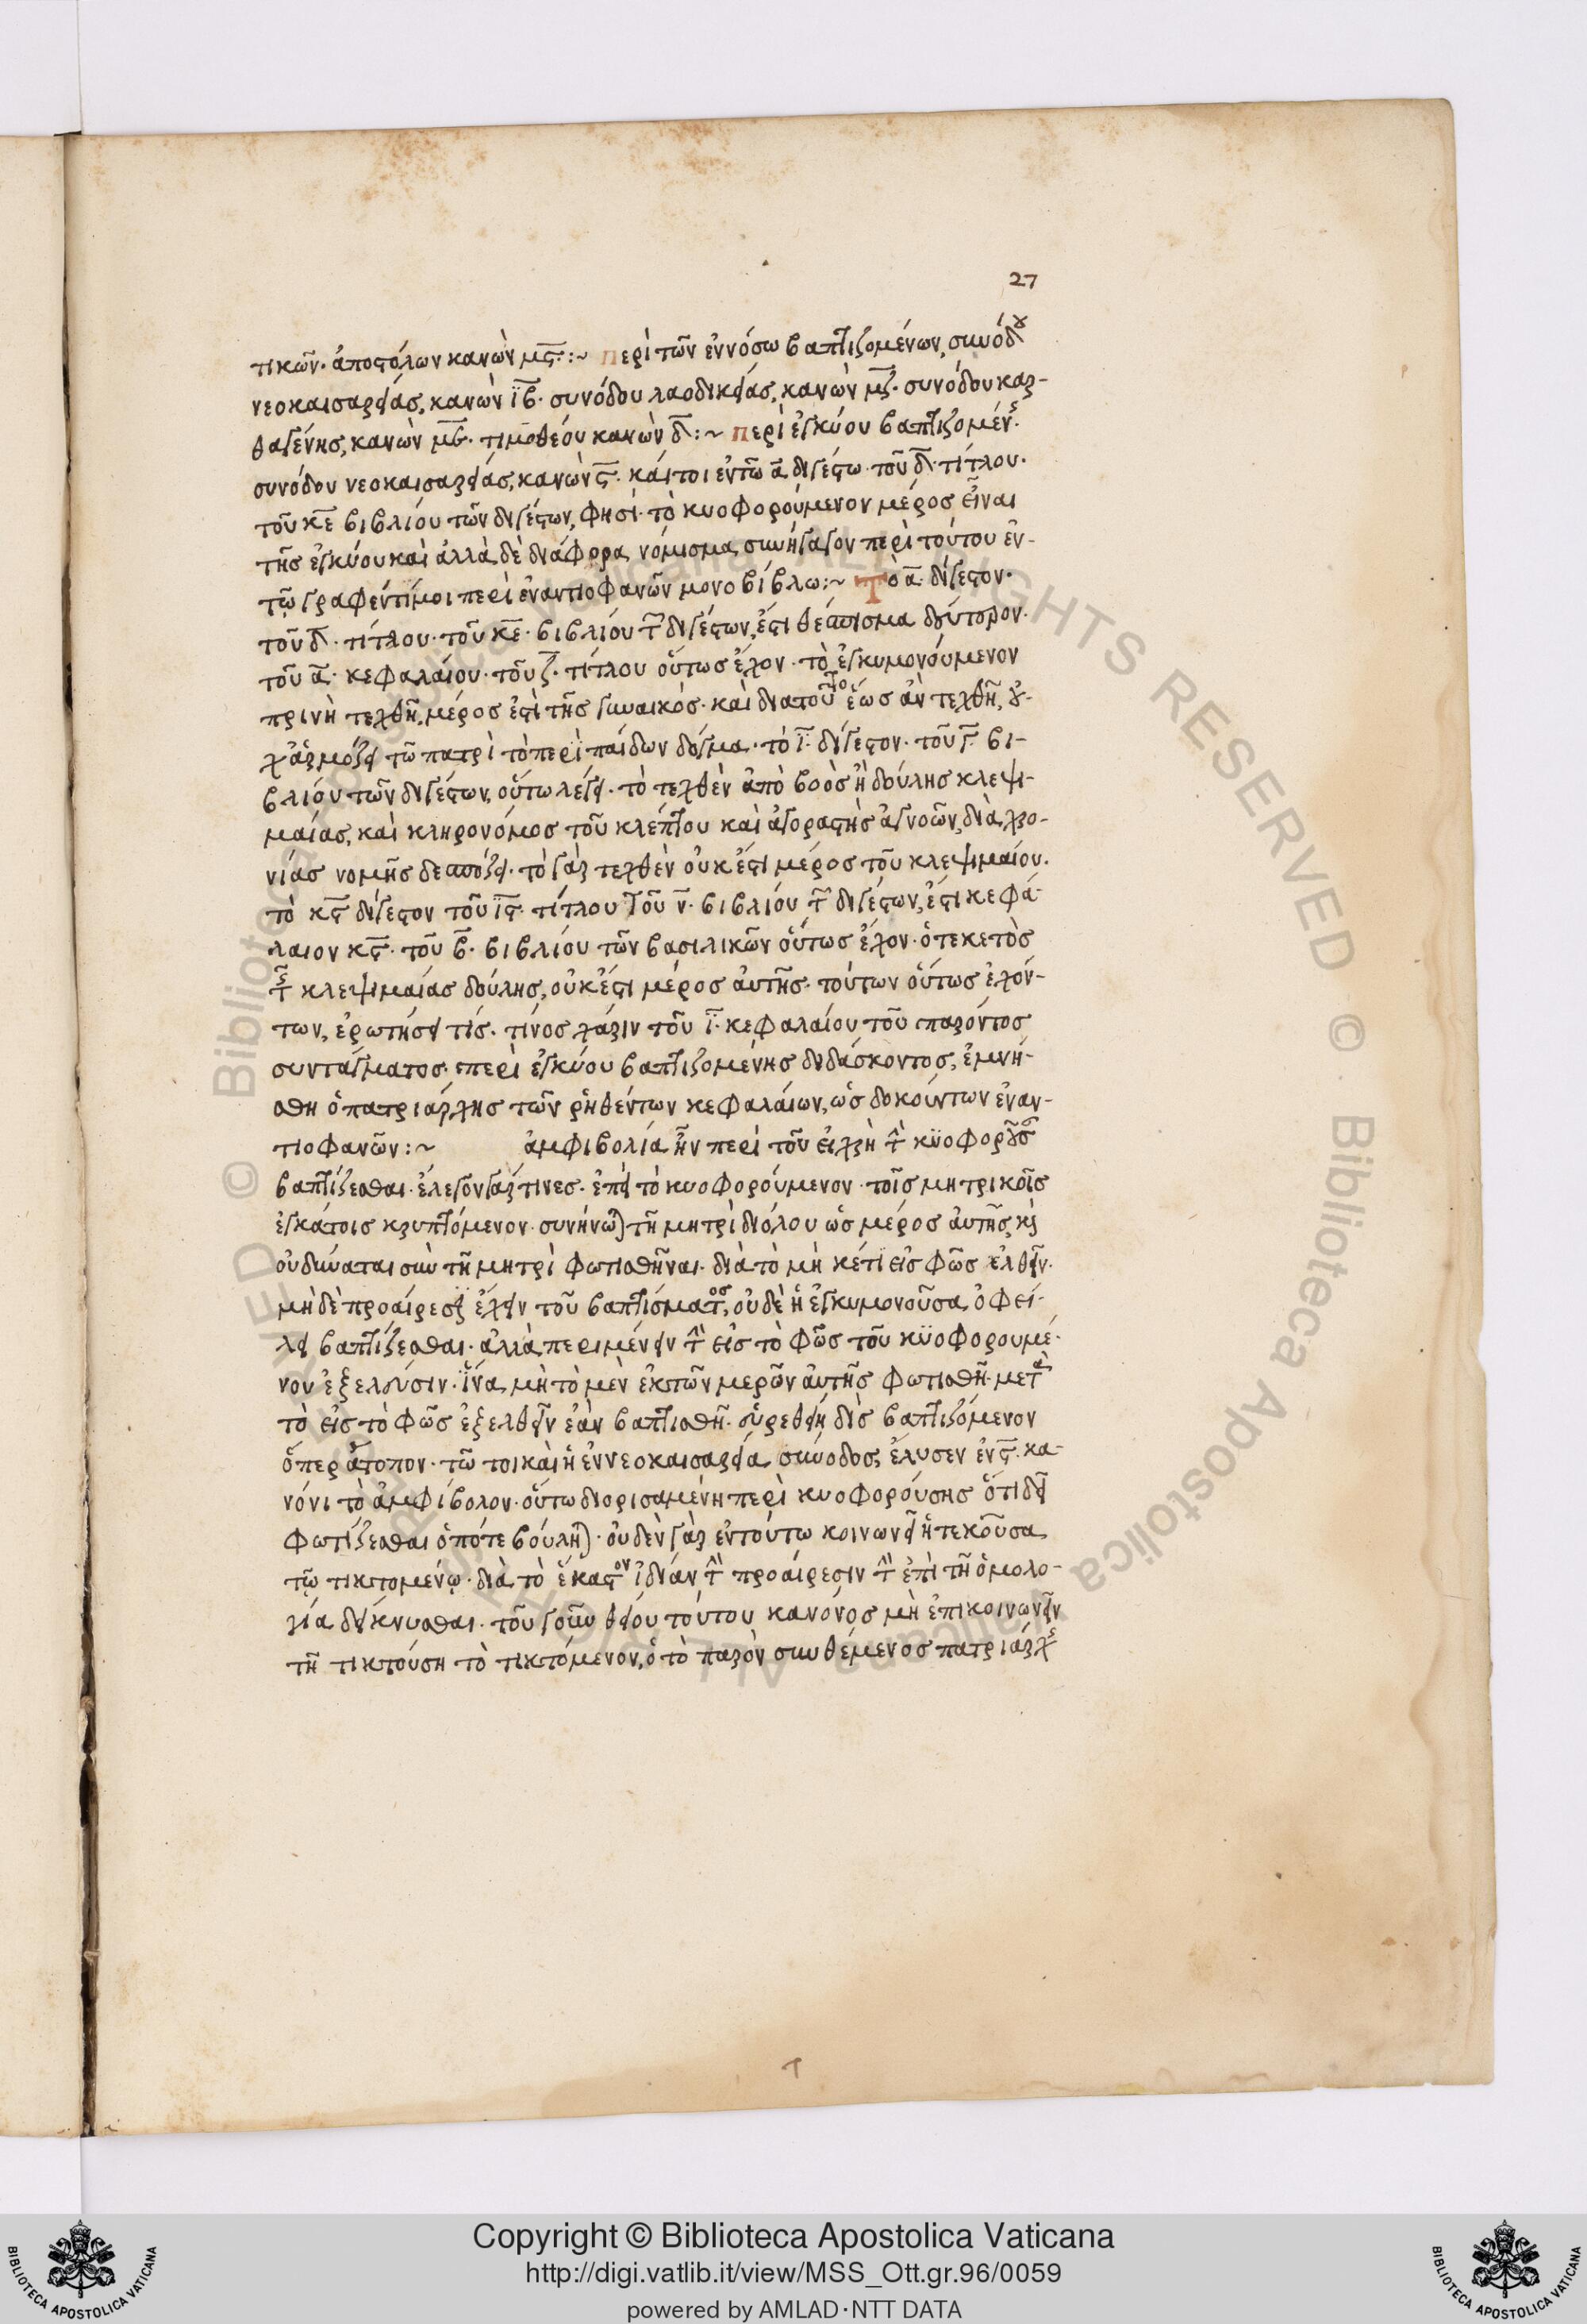 27
τικῶν· ἀποστόλων κανὼν μϛ̅ :~ περὶ τῶν ἐννόσω βαπτιζομένων, συνόδου
νεοκαισαρείας, κανὼν ϊβ̅· συνόδου λαοδικείας, κανὼν μζ̅· συνόδου καρ-
θαγένης, κανὼν με̅· τιμοθέου κανὼν δ̅ :~ περὶ ἐγκύου βαπτιζομένης·
συνόδου νεοκαισαρείας, κανὼν ϛ̅· καίτοι ἐντῶ α̅ διγέστω· τοῦ δ̅· τίτλου·
τοῦ κε̅ βιβλίου τῶν διγέστων, φησὶ· τὸ κυοφορούμενον μέρος εἶναι
τῆς ἐγκύου καὶ ἀλλὰ δὲ διάφορα νόμισμα συνήγαγον περὶ τούτου ἐν-
τῷ γραφέντίμοι περὶ ἐναντιοφανῶν μονοβίβλω :~ Τὸ α̅· δίγεστον·
τοῦ δ̅· τίτλου· τοῦ κε̅· βιβλίου τῶν διγέστων, ἐστι θέσπισμα δεύτερον·
τοῦ α̅· κεφαλαίου· τοῦ ζ̅· τίτλου οὕτως ἔχον· τὸ ἐγκυμονούμενον
πρινὴ τεχθῆ, μέρος ἐστὶ τῆς γυναικός· καὶ διατοῦτο ἕως ἂν τεχθῆ, οὐ-
χἁρμόζει τῶ πατρὶ τὸ περὶ παίδων δόγμα· τὸ ϊ̅· δίγεστον· τοῦ γ̅· βι-
βλίου τῶν διγέστων, οὕτω λέγει· τὸ τεχθὲν ἀπὸ βοὸς ἢ δούλης κλεψι-
μαίας, καὶ κληρονόμος τοῦ κλέπτου καὶ ἀγοραστὴς ἀγνοῶν, διὰ χρο-
νίας νομῆς δεσπόζει· τὸ γὰρ τεχθὲν οὐκ ἔστι μέρος τοῦ κλεψιμαίου.
τὸ κϛ̅ δίγεστον τοῦ ϊϛ̅· τίτλου τοῦ ν̅· βιβλίου τῶν διγέστων, ἐστι κεφά-
λαιον κϛ̅· τοῦ β̅· βιβλίου τῶν βασιλικῶν οὕτως ἔχον· ὁτεκετὸς
τῆς κλεψιμαίας δούλης, οὐκἔστι μέρος αὐτῆς· τούτων οὕτως ἐχόν-
των, ἐρωτήσει τίς· τίνος χάριν τοῦ ϊ̅· κεφαλαίου τοῦ παρόντος
συντάγματος· περὶ ἐγκύου βαπτιζομένης διδάσκοντος, ἐμνή-
σθη ὁ πατριάρχης τῶν ῥηθέντων κεφαλαίων, ὡς δοκούντων ἐναν-
τιοφανῶν :~ ἀμφιβολία ἦν περὶ τοῦ εἰ χρὴ τὴν κϋοφοροῦσαν
βαπτίζεσθαι· ἔλεγον γάρ τινες· ἐπεὶ τὸ κυοφορούμενον· τοῖς μητρικοῖς
ἐγκάτοις κρυπτόμενον· συνήνωται τῆ μητρὶ διόλου ὡς μέρος αὐτῆς, καὶ
οὐδύναται σὺν τῆ μητρὶ φωτισθῆναι· διὰ τὸ μὴ κέτι εἰς φῶς ἐλθεῖν·
μὴ δὲ προαίρεσιν ἔχειν τοῦ βαπτίσματος, οὐδὲ ἡ ἐγκυμονοῦσα, ὀφεί-
λει βαπτίζεσθαι· ἀλλὰ περιμένειν τὴν εἰς τὸ φῶς τοῦ κϋοφορουμέ-
νου ἐξέλευσιν· ἵνα μὴ τὸ μὲν ἐκ τῶν μερῶν αὐτῆς φωτισθῆ· μετὰ
τὸ εἰς τὸ φῶς ἐξελθεῖν ἐὰν βαπτισθῆ· εὑρεθείη δὶς βαπτιζόμενον
ὅπερ ἄτοπον· τῶ τοι καὶ ἡ ἐννεοκαισαρεία σύνοδος, ἔλυσεν ἐν ϛ̅· κα-
νόνι τὸ ἀμφίβολον· οὕτω διορισαμένη περὶ κυοφορούσης ὅτι δεῖ
φωτίζεσθαι ὁπότε βούληται· οὐδὲν γὰρ ἐντούτω κοινωνεῖ ἡ τεκοῦσα
τῷ τικτομένῳ· διὰ τὸ ἕκαστον ἰδίαν τὴν προαίρεσιν τὴν ἐπὶ τῆ ὁμολο-
γία δείκνυσθαι· τοῦ γοῦν θείου τούτου κανόνος μὴ ἐπικοινωνεῖν
τῆ τικτούση τὸ τικτόμενον, ὁ τὸ παρὸν συνθέμενος πατριάρχης
Copyright © Biblioteca Apostolica Vaticana
http://digi.vatlib.it/view/MSS_Ott.gr.96/0059
powered by AMLAD·NTT DATA